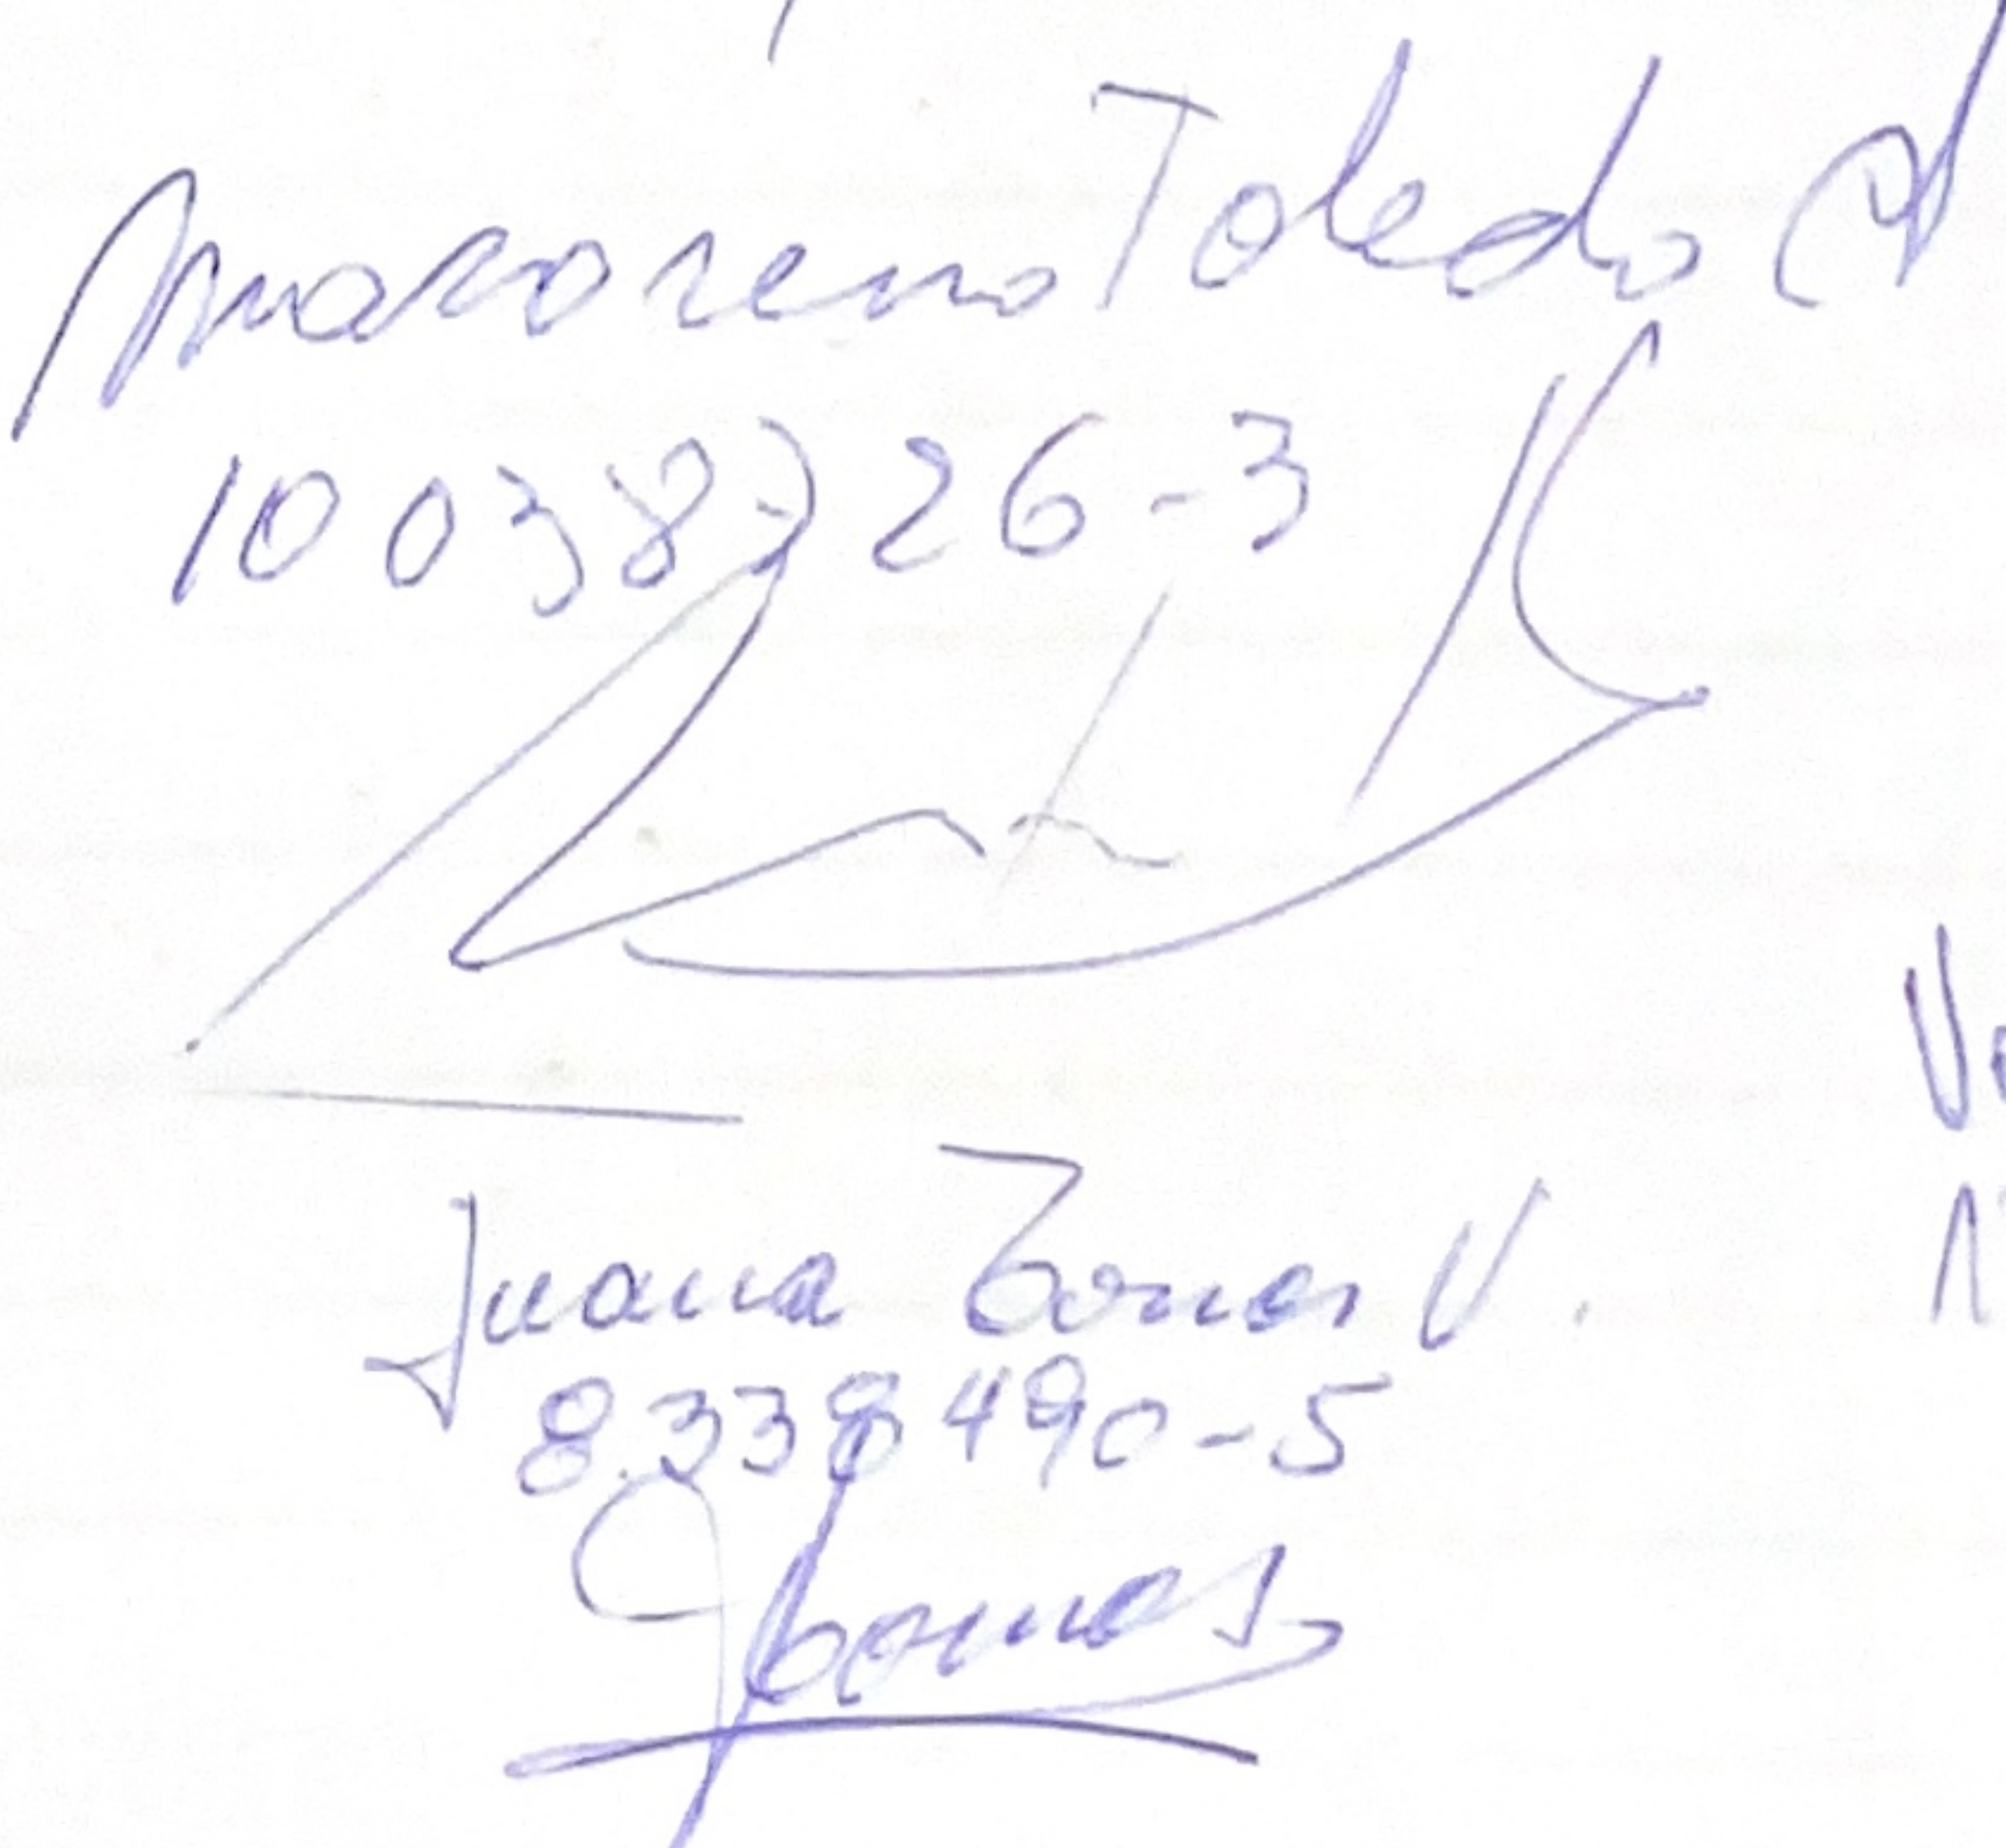 Macarena Toledo A
10038726-3
Juana Torres V.
8.338490-5